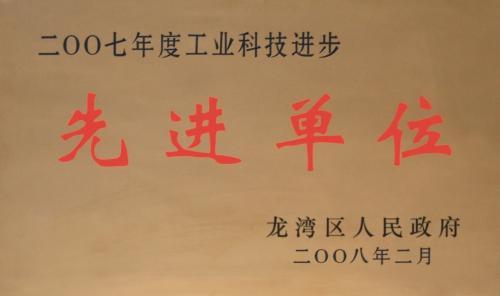 二〇〇七年度工业科技进步
先进单位
龙湾区人民政府
二〇〇八年二月